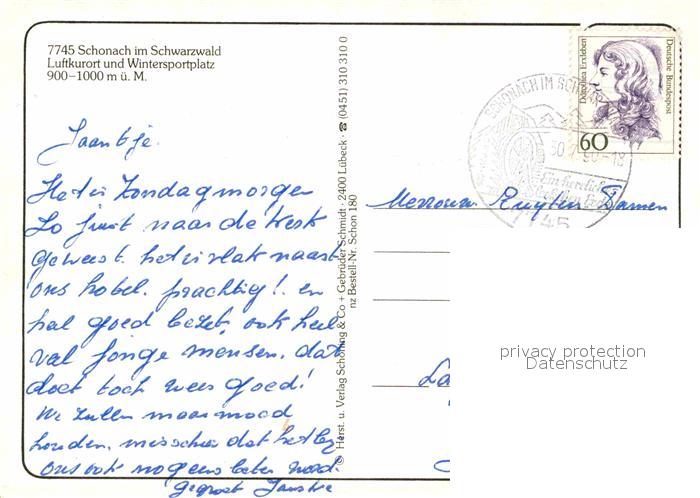 7745 Schonach im Schwarzwald
Luftkurort und Wintersportplatz
900–1000 m ü. M.
Jaantje.
Het is Zondagmorgen
Zo juist naar de kerk
geweest. het is vlak naast
ons hotel. prachtig!. en
hal goed bezet, ook heel
val jonge mensen. dat
doet toch weer goed!
We zullen maar moed
houden. misschien dat het bij
ons ook nog eens beter word.
gegroet Jantie
© Herst. u. Verlag Schöning & Co + Gebrüder Schmidt · 2400 Lübeck · ☎ (0451) 310 310 0
nz Bestell-Nr. Schon 180
SCHONACH IM SCHWAR
90-18
7745
Dorothea Erxleben
Deutsche Bundespost
60
Mevrouw Damen
privacy protection
Datenschutz